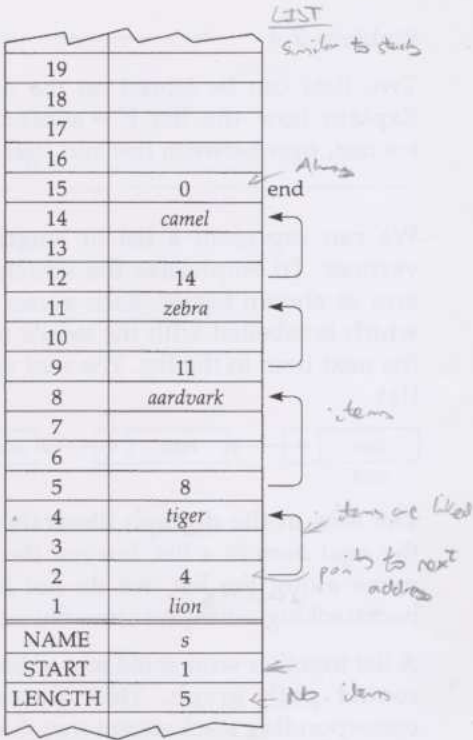 LIST
Similar to
19
18
17
16
15 0 end
14 camel
13
12 14
11 zebra
10
9 11
8 aardvark
7
6
5 8
4 tiger
3
2 4
1 lion
NAME s
START 1
LENGTH 5
items
items are
points to next
address
No items